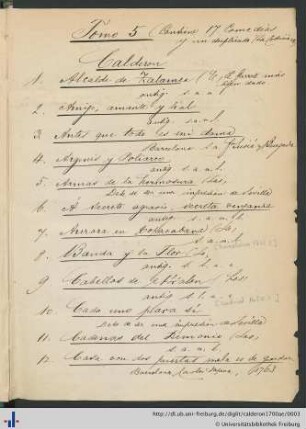 Tomo 5 (Contiene 17 Comedias
y un duplicado
Calderon
1. Alcalde de Zalamea (El
antig. s. a. l.
2. Amigo, amante y leal
antig. s. a. l.
3 Antes que todo es mi dama
Barcelona
4. Argenis y Poliarco
antig. s. a. l.
5. Armas de la hermosura (Las,
Debe de ser una impresion de Sevilla
6. A secreto agravio, secreta venganza
antig. s. a. l.
7. Aurora en Copacabana (La,
s. a. l.
8. Banda y la Flor (La,
antig. s. l. a.
9 Cabellos de Absalon (Los,
antig s. l. a.
10. Cada uno para sí
Debe de ser una impresion de Sevilla
11. Cadenas del Demonio (Las,
s. a. l.
12. Casa con dos puertas mala es de guardar
Barcelona, 1763
http://dl.ub.uni-freiburg.de/diglit/calderon1700ae/0003
© Universitätsbibliothek Freiburg